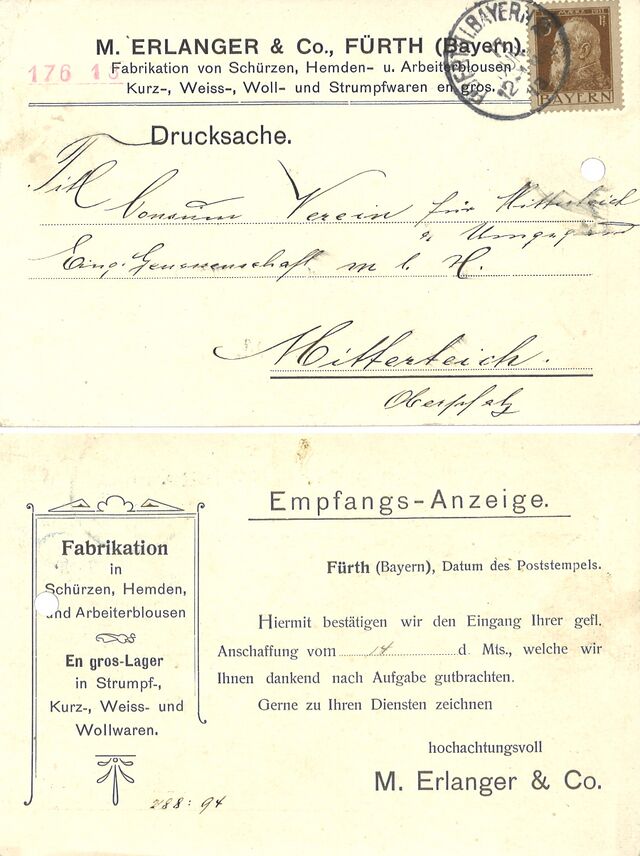 M. ERLANGER & Co., FÜRTH (Bayern).
176 1
Fabrikation von Schürzen, Hemden- u. Arbeiterblousen
Kurz-, Weiss-, Woll- und Strumpfwaren en gros.
BAYERN
Drucksache.
Consum Verein für Mitterteich
u. Umgegend
Eing. Genossenschaft m. b. H.
Mitterteich.
Oberpfalz
Empfangs-Anzeige.
Fabrikation
in
Schürzen, Hemden,
und Arbeiterblousen
En gros-Lager
in Strumpf-,
Kurz-, Weiss- und
Wollwaren.
Fürth (Bayern), Datum des Poststempels.
Hiermit bestätigen wir den Eingang Ihrer gefl.
Anschaffung vom 14 d. Mts., welche wir
Ihnen dankend nach Aufgabe gutbrachten.
Gerne zu Ihren Diensten zeichnen
hochachtungsvoll
M. Erlanger & Co.
288: 94